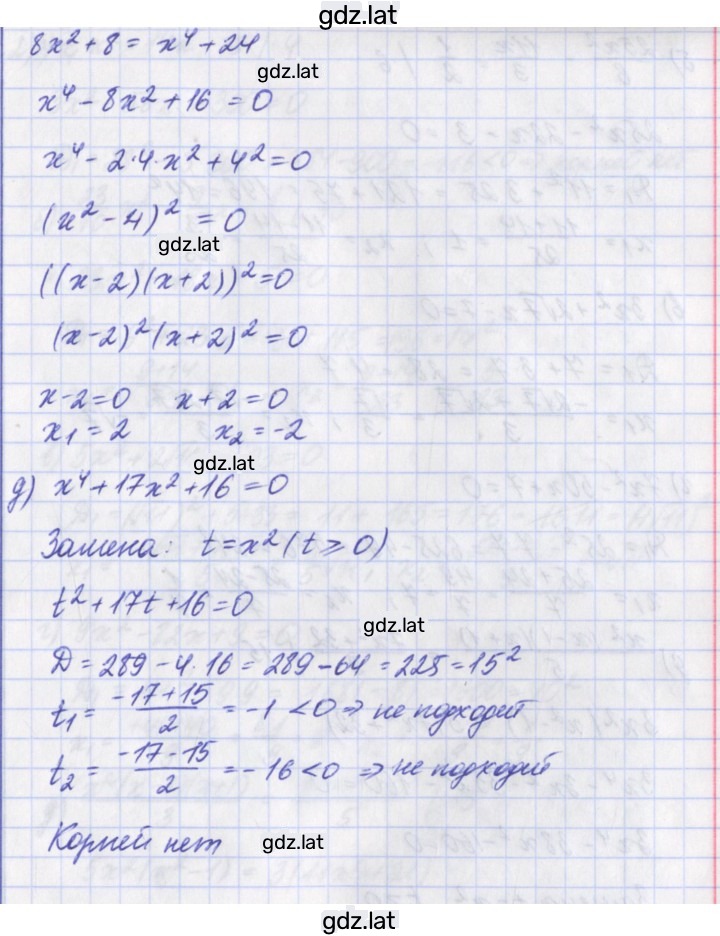 gdz.lat
8x² + 8 = x⁴ + 24
gdz.lat
x⁴ - 8x² + 16 = 0
x⁴ - 2·4·x² + 4² = 0
(x² - 4)² = 0
gdz.lat
((x-2)(x+2))² = 0
(x-2)²(x+2)² = 0
x-2=0 x+2=0
x₁ = 2 x₂ = -2
gdz.lat
д) x⁴ + 17x² + 16 = 0
Замена: t = x² (t ⩾ 0)
t² + 17t + 16 = 0
gdz.lat
D = 289 - 4·16 = 289 - 64 = 225 = 15²
t₁ = (-17+15)/2 = -1 < 0 ⇒ не подходит
t₂ = (-17-15)/2 = -16 < 0 ⇒ не подходит
Корней нет gdz.lat
gdz.lat